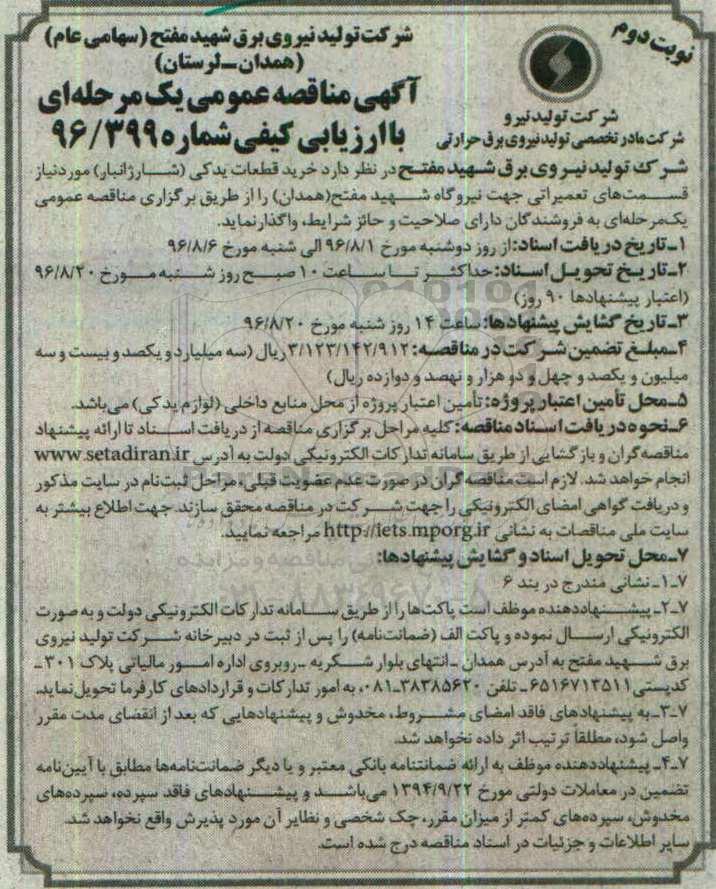 نوبت دوم
شرکت تولید نیروی برق شهید مفتح (سهامی عام)
(همدان-لرستان)
آگهی مناقصه عمومی یک مرحله‌ای
با ارزیابی کیفی شماره ۹۶/۳۹۹
شرکت تولید نیرو
شرکت مادر تخصصی تولید نیروی برق حرارتی
شرکت تولید نیروی برق شهید مفتح در نظر دارد خرید قطعات یدکی (شارژانبار) موردنیاز
قسمت‌های تعمیراتی جهت نیروگاه شهید مفتح(همدان) را از طریق برگزاری مناقصه عمومی
یک‌مرحله‌ای به فروشندگان دارای صلاحیت و حائز شرایط، واگذار نماید.
۱-تاریخ دریافت اسناد: از روز دوشنبه مورخ ۹۶/۸/۱ الی شنبه مورخ ۹۶/۸/۶
۲-تاریخ تحویل اسناد: حداکثر تا ساعت ۱۰ صبح روز شنبه مورخ ۹۶/۸/۲۰
(اعتبار پیشنهادها ۹۰ روز)
۳-تاریخ گشایش پیشنهادها: ساعت ۱۴ روز شنبه مورخ ۹۶/۸/۲۰
۴-مبلغ تضمین شرکت در مناقصه: ۳/۱۲۳/۱۴۲/۹۱۲ریال (سه میلیارد و یکصد و بیست و سه
میلیون و یکصد و چهل و دو هزار و نهصد و دوازده ریال)
۵-محل تأمین اعتبار پروژه: تأمین اعتبار پروژه از محل منابع داخلی (لوازم یدکی) می‌باشد.
۶-نحوه دریافت اسناد مناقصه: کلیه مراحل برگزاری مناقصه از دریافت اسناد تا ارائه پیشنهاد
مناقصه‌گران و بازگشایی از طریق سامانه تدارکات الکترونیکی دولت به آدرس www.setadiran.ir
انجام خواهد شد. لازم است مناقصه‌گران در صورت عدم عضویت قبلی، مراحل ثبت‌نام در سایت مذکور
و دریافت گواهی امضای الکترونیکی را جهت شرکت در مناقصه محقق سازند. جهت اطلاع بیشتر به
سایت ملی مناقصات به نشانی http://iets.mporg.ir مراجعه نمایید.
۷-محل تحویل اسناد و گشایش پیشنهادها:
۷-۱-نشانی مندرج در بند ۶
۷-۲-پیشنهاددهنده موظف است پاکت‌ها را از طریق سامانه تدارکات الکترونیکی دولت و به صورت
الکترونیکی ارسال نموده و پاکت الف (ضمانت‌نامه) را پس از ثبت در دبیرخانه شرکت تولید نیروی
برق شهید مفتح به آدرس همدان -انتهای بلوار شکریه -روبروی اداره امور مالیاتی پلاک ۳۰۱-
کدپستی ۶۵۱۶۷۱۳۵۱۱- تلفن ۳۸۳۸۵۶۲۰-۰۸۱، به امور تدارکات و قراردادهای کارفرما تحویل نماید.
۷-۳-به پیشنهادهای فاقد امضای مشروط، مخدوش و پیشنهادهایی که بعد از انقضای مدت مقرر
واصل شود، مطلقاً ترتیب اثر داده نخواهد شد.
۷-۴- پیشنهاددهنده موظف به ارائه ضمانتنامه بانکی معتبر و یا دیگر ضمانت‌نامه‌ها مطابق با آیین‌نامه
تضمین در معاملات دولتی مورخ ۱۳۹۴/۹/۲۲ می‌باشد و پیشنهادهای فاقد سپرده، سپرده‌های
مخدوش، سپرده‌های کمتر از میزان مقرر، چک شخصی و نظایر آن مورد پذیرش واقع نخواهد شد.
سایر اطلاعات و جزئیات در اسناد مناقصه درج شده است.